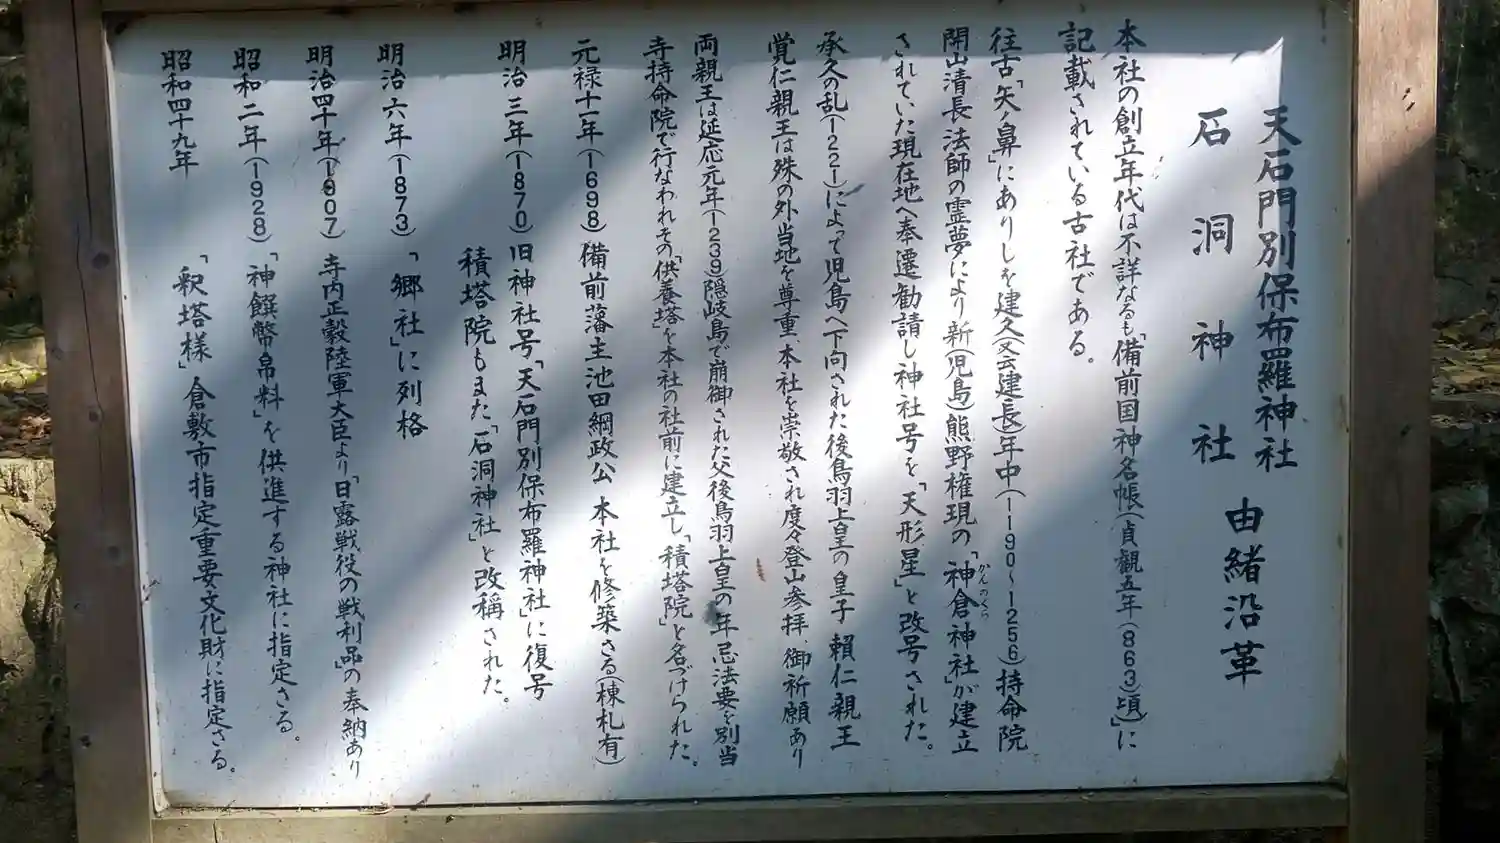 天石門別保布羅神社
石洞神社
由緒沿革
本社の創立年代は不詳なるも「備前国神名帳(貞観五年(863)頃)」に
記載されている古社である。
往古「矢ノ鼻」にありしを建久(又云建長)年中(1190〜1256)持命院
開山清長法師の霊夢により新(児島)熊野権現の「神倉神社」が建立
かんのくら
されていた現在地へ奉遷勧請し神社号を「天形星」と改号された。
承久の乱(1221)によって児島へ下向された後鳥羽上皇の皇子 頼仁親王
覚仁親王は殊の外当地を尊重、本社を崇敬され度々登山参拝、御祈願あり
両親王は延応元年(1239)隠岐島で崩御された父後鳥羽上皇の年忌法要を別当
寺持命院で行なわれその「供養塔」を本社の社前に建立し「積塔院」と名づけられた。
元禄十一年(1698)備前藩主池田綱政公 本社を修築さる(棟札有)
明治三年(1870)旧神社号「天石門別保布羅神社」に復号
積塔院もまた「石洞神社」と改稱された。
明治六年(1873)「郷社」に列格
明治四十年(1907)寺内正毅陸軍大臣より「日露戦役の戦利品」の奉納あり
昭和二年(1928)「神饌幣帛料」を供進する神社に指定さる。
昭和四十九年 「釈塔様」倉敷市指定重要文化財に指定さる。